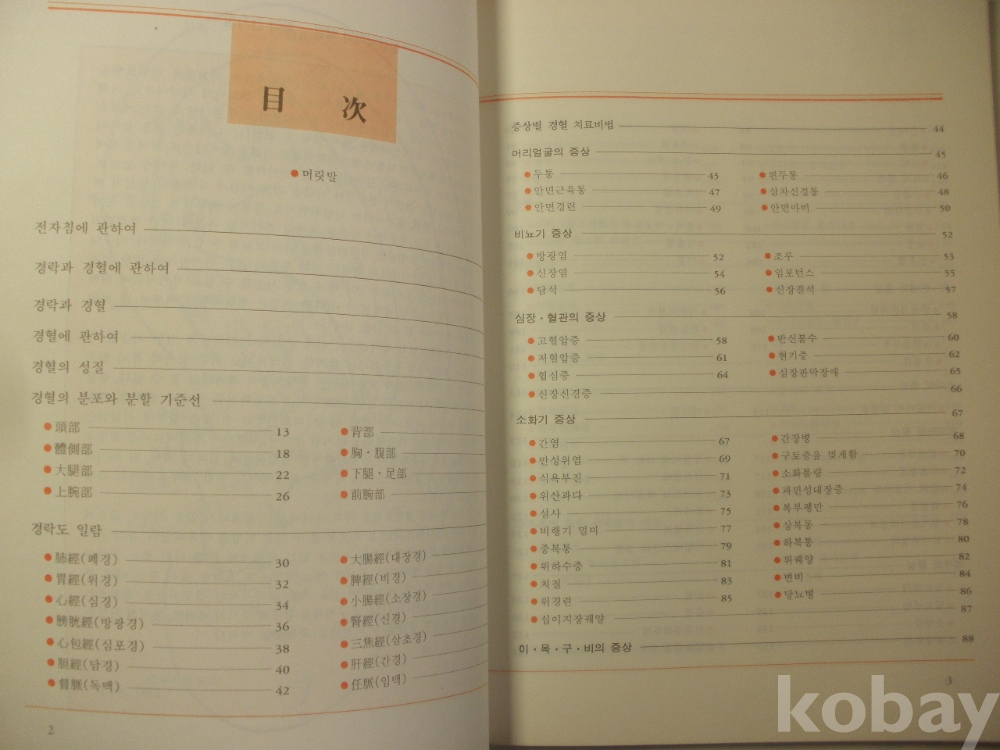 目 次
● 머릿말
전자침에 관하여
경락과 경혈에 관하여
경락과 경혈
경혈에 관하여
경혈의 성질
경혈의 분포와 분할 기준선
● 頭部 13 ● 背部
● 體側部 18 ● 胸・腹部
● 大腿部 22 ● 下腿・足部
● 上腕部 26 ● 前腕部
경락도 일람
● 肺經(폐경) 30 ● 大腸經(대장경)
● 胃經(위경) 32 ● 脾經(비경)
● 心經(심경) 34 ● 小腸經(소장경)
● 膀胱經(방광경) 36 ● 腎經(신경)
● 心包經(심포경) 38 ● 三焦經(삼초경)
● 膽經(담경) 40 ● 肝經(간경)
● 督脈(독맥) 42 ● 任脈(임맥)
2
증상별 경혈 치료비법 44
머리얼굴의 증상 45
● 두통 45 ● 편두통 46
● 안면근육통 47 ● 삼차신경통 48
● 안면경련 49 ● 안면마비 50
비뇨기 증상 52
● 방광염 52 ● 조루 53
● 신장염 54 ● 임포턴스 55
● 담석 56 ● 신장결석 57
심장・혈관의 증상 58
● 고혈압증 58 ● 반신불수 60
● 저혈압증 61 ● 현기증 62
● 협심증 64 ● 심장판막장애 65
● 신장신경증 66
소화기 증상 67
● 간염 67 ● 간장병 68
● 만성위염 69 ● 구토증을 멎게함 70
● 식욕부진 71 ● 소화불량 72
● 위산과다 73 ● 과민성대장증 74
● 설사 75 ● 복부팽만 76
● 비행기 멀미 77 ● 상복통 78
● 중복통 79 ● 하복통 80
● 위하수증 81 ● 위궤양 82
● 치질 83 ● 변비 84
● 위경련 85 ● 당뇨병 86
● 십이지장궤양 87
이・목・구・비의 증상 88
3
kobay